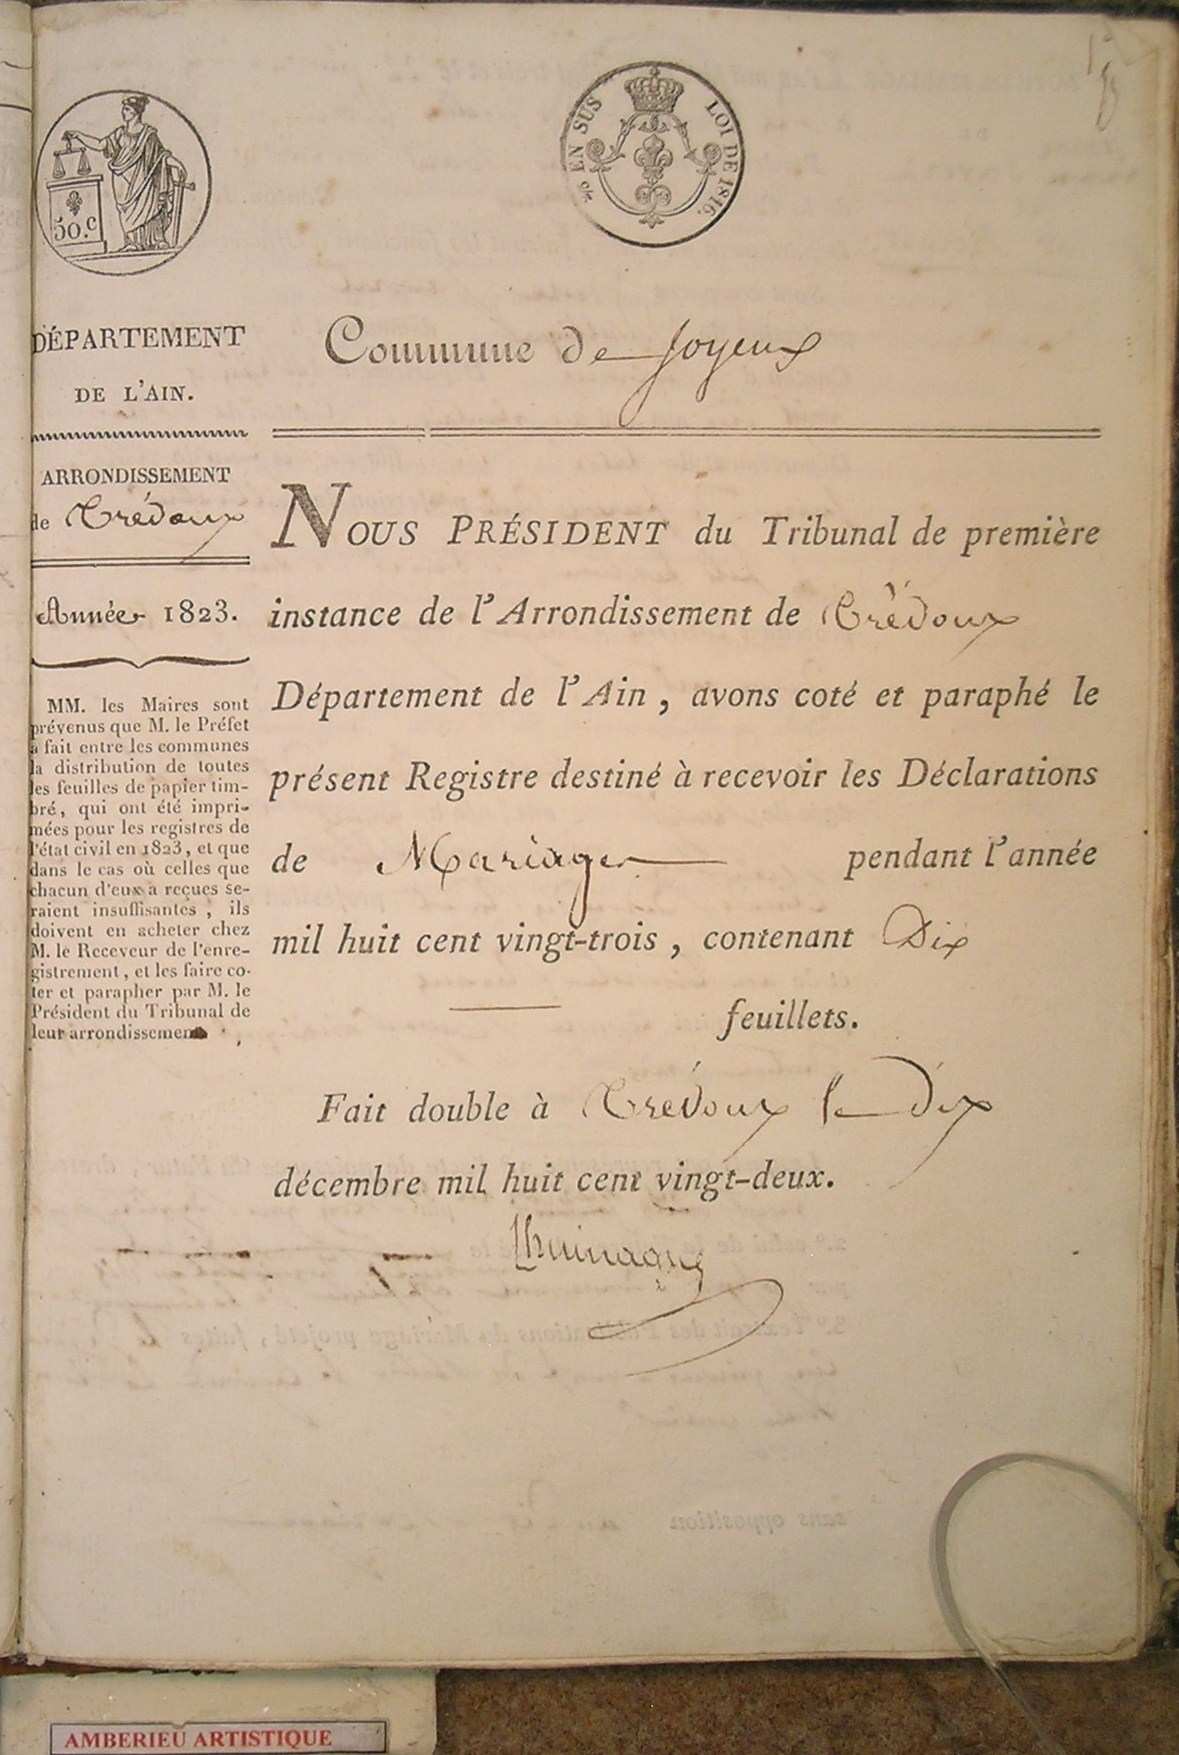 50.c
EN SUS
LOI DE 1816.
DÉPARTEMENT
DE L'AIN.
Commune de Joyeux
ARRONDISSEMENT
de Trévoux
Année 1823.
MM. les Maires sont
prévenus que M. le Préfet
a fait entre les communes
la distribution de toutes
les feuilles de papier tim-
bré, qui ont été impri-
mées pour les registres de
l'état civil en 1823, et que
dans le cas où celles que
chacun d'eux a reçues se-
raient insuffisantes, ils
doivent en acheter chez
M. le Receveur de l'enre-
gistrement, et les faire co-
ter et parapher par M. le
Président du Tribunal de
leur arrondissement
NOUS PRÉSIDENT du Tribunal de première
instance de l'Arrondissement de Trévoux
Département de l'Ain, avons coté et paraphé le
présent Registre destiné à recevoir les Déclarations
de Mariage pendant l'année
mil huit cent vingt-trois, contenant Dix
feuillets.
Fait double à Trévoux le dix
décembre mil huit cent vingt-deux.
AMBERIEU ARTISTIQUE